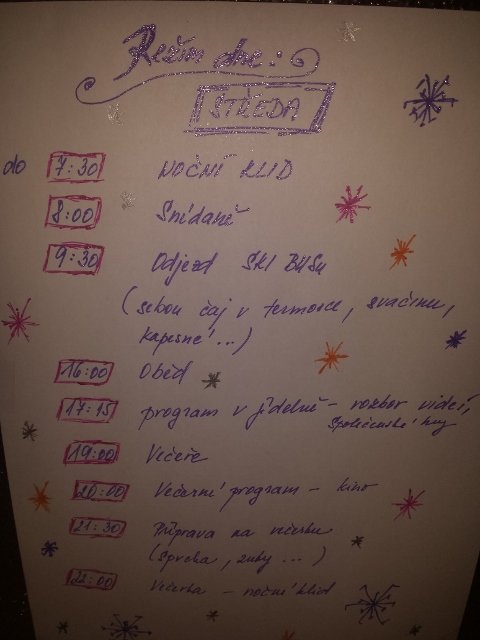 Režim dne:
STŘEDA
do 7:30 NOČNÍ KLID
8:00 Snídaně
9:30 Odjezd SKI BUSu
(sebou čaj v termosce, svačinu,
kapesné...)
16:00 Oběd
17:15 program v jídelně - rozbor videí,
společenské hry
19:00 Večeře
20:00 Večerní program - kino
21:30 Příprava na večerku
(sprcha, zuby ...)
22:00 Večerka - noční klid